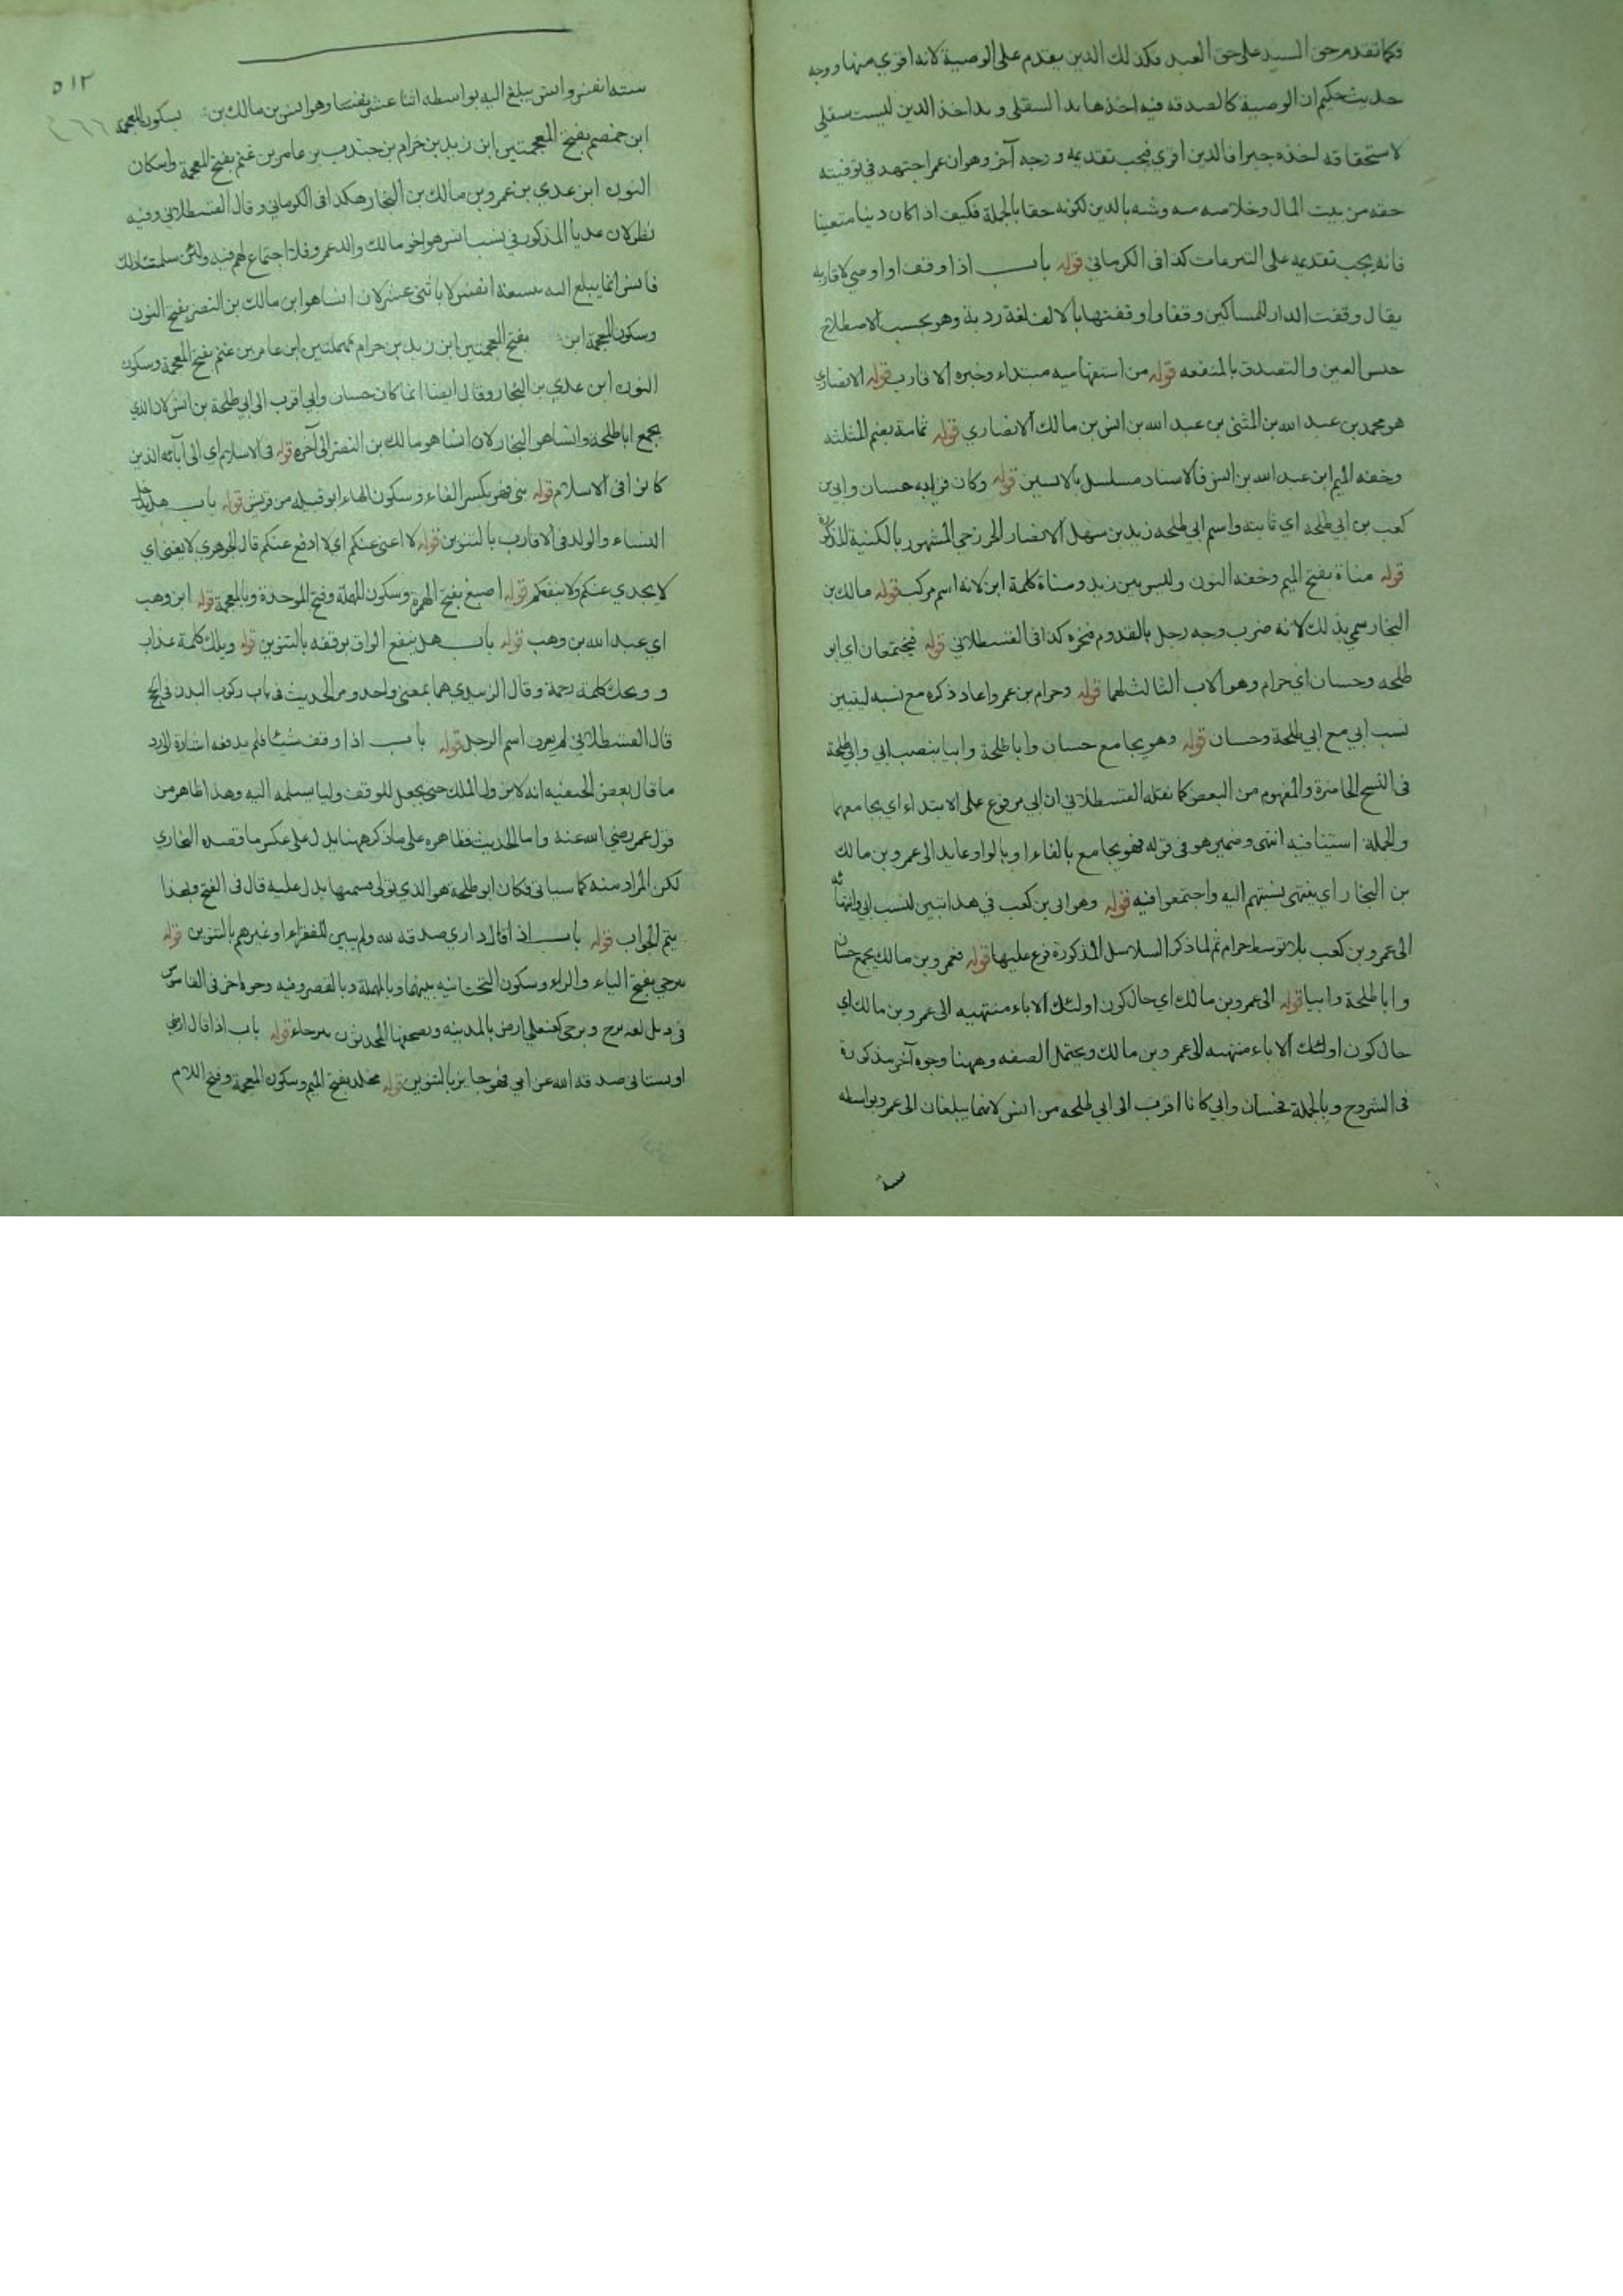 فكما تقدم حق السيد على حق العبد فكذلك الدين يقدم على الوصية لانه اقوي منها ووجه
حديث حكيم ان الوصية كالصدقه فيه اخذها يد السفلى و يد اخذ الدين ليست سفلى
لاستحقاقه اخذه جبرا فالدين اقوي فيجب تقديمه ووجه آخر وهو ان عمر اجتهد في توفيته
حقه من بيت المال وخلاصه منه وشبه بالدين لكونه حقا بالجملة فكيف اذا كان دينا متعينا
فانه يجب تقديمه على التبرعات كذا فى الكرماني قوله باب اذا وقف او اوصي لاقاربه
يقال وقفت الدار للمساكين وقفا واوقفتها بالالف لغة ردية وهو بحسب الاصطلاح
حبس العين والتصدق بالمنفعه قوله من استفهاميه مبتداء وخبره الاقارب قوله الانصاري
هو محمد بن عبد الله بن المثنى بن عبد الله بن انس بن مالك الانصاري قوله ثمامة بضم المثلثه
وخفه الميم ابن عبد الله بن انس فالاسناد مسلسل بالانسيين قوله وكان قرابه حسان وابي بن
كعب من ابي طلحه اي ثابته واسم ابي طلحه زيد بن سهل الانصار الخزرجي المشهور بالكنية المذكورة
قوله مناة بفتح الميم وخفه النون وليس بين زيد ومناة كلمة ابن لانه اسم مركب قوله مالك بن
النجار سمي بذلك لانه ضرب وجه رجل بالقدوم فنجره كذا فى القسطلاني قوله فيجتمعان اي ابو
طلحه وحسان اي حرام وهو الاب الثالث لهما قوله وحرام بن عمرو اعاد ذكره مع نسبه ليتبين
نسب ابي مع ابي طلحة وحسان قوله وهو يجامع حسان وابا طلحة وابيا بنصب ابي وابي طلحة
فى النسخ الحاضرة والمفهوم من البعض كما نقله القسطلاني ان ابي مرفوع على الابتداء اي يجامعهما
والجملة استينافيه انتهى وضمير هو فى قوله فهو يجامع بالفاء او بالواو عايد الى عمرو بن مالك
بن النجار اي ينتهى نسبتهم اليه واجتمعوا فيه قوله وهو ابى بن كعب في هذا تبيين لنسب ابي وانتهائه
الى عمرو بن كعب بلا توسط حرام ثم لما ذكر السلاسل المذكورة فرع عليها قوله فعمرو بن مالك يجمع حسان
وابا طلحة وابيا قوله الى عمرو بن مالك اي حال كون اولئك الاباء منتهيه الى عمرو بن مالك اي
حال كون اولئك الاباء منتهيه الى عمرو بن مالك ويحتمل الصفه وههنا وجوه آخر مذكورة
فى الشروح وبالجملة فحسان وابي كانا اقرب الى ابي طلحه من انس لانهما يبلغان الى عمرو بواسطه
ستة
٥١٢
ستة انفس وانس يبلغ اليه بواسطه اثنا عشر نفسا وهو انس بن مالك بن بسكون المعجمة
ابن ضمضم بفتح المعجمتين ابن زيد بن حرام بن جندب بن عامر بن غنم بفتح المعجمة واسكان
النون ابن عدي بن عمرو بن مالك بن النجار هكذا فى الكرماني وقال القسطلاني وفيه
نظر لان عديا المذكور في نسب انس هو اخو مالك والد عمرو فلا اجتماع لهم فيه ولئن سلمنا ذلك
فانس انما يبلغ اليه بتسعة انفس لا باثنى عشر لان انسا هو ابن مالك بن النضر بفتح النون
وسكون المعجمة ابن بفتح المعجمتين ابن زيد بن حرام بمهملتين ابن عامر بن غنم بفتح المعجمة وسكون
النون ابن عدي بن النجار وقال ايضا انما كان حسان وابي اقرب الى ابي طلحة من انس لان الذي
يجمع ابا طلحة وانسا هو النجار لان انسا هو مالك بن النضر الى آخره قوله فى الاسلام اي الى آبائه الذين
كانوا فى الاسلام قوله بني فهر بكسر الفاء وسكون الهاء ابو قبيله من قريش قوله باب هل يدخل
النساء والولد فى الاقارب بالتنوين قوله لا اغنى عنكم اي لا ادفع عنكم قال الجوهري لا يغنى اي
لا يجدي عنكم ولا ينفعكم قوله اصبغ بفتح الهمزة وسكون المهملة وفتح الموحدة وبالمعجمة قوله ابن وهب
اي عبد الله بن وهب قوله باب هل ينفع الواقف بوقفه بالتنوين قوله ويلك كلمة عذاب
و ويحك كلمة رحمة وقال الزبيدي هما بمعنى واحد ومر الحديث فى باب ركوب البدن فى الحج
قال القسطلاني لم يعرف اسم الرجل قوله باب اذا وقف شيئا فلم يدفعه اشارة الى رد
ما قال بعض الحنفيه انه لا يزول الملك حتى يجعل للوقف وليا يسلمه اليه وهذا ظاهر من
قول عمر رضي الله عنه واما الحديث فظاهره على ما ذكر ههنا يدل على عكس ما قصده البخاري
لكن المراد منه كما سياتى فكان ابو طلحة هو الذي تولى قسمها يدل عليه قال فى الفتح وبهذا
يتم الجواب قوله باب اذا قال داري صدقه لله ولم يبين للفقراء او غيرهم بالتنوين قوله
بيرحي بفتح الباء والراء وسكون التحتانيه بينهما وبالمهملة وبالقصر وفيه وجوه اخر فى القاموس
فى ارض بالمدينه ويصحفها المحدثون بيرحاء قوله باب اذا قال ارضي
او بستانى صدقه الله عن امي فهو جايز بالتنوين قوله مخلد بفتح الميم وسكون المعجمة وفتح اللام